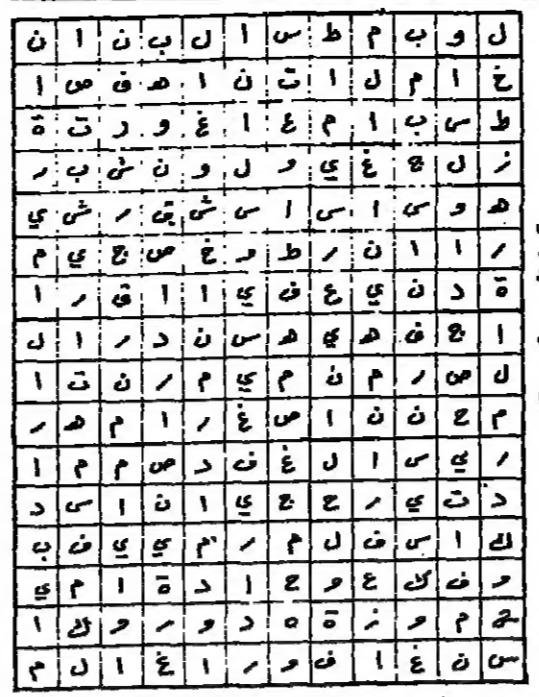 ل و ب م ط س ا ل ب ن ا ن
خ ا م ل ا ت ن ا ه ف ص ا
ط س ب ا م غ ا غ و د ت ة
ز ل ج غ ي و ل و ن ش ب ر
ه و س ا س ا س ش ق ر ش ي
ر ا ا ن ر ط و خ ص ج ي م
ة د ن ي ع ف ي ا ا ق ر ا
ا ج ف ه ي ه س ن د ر ا ل
ل ص ر م ن م ي م ر ن ت ا
م ح ن ن ا ص غ ر ا م ه ر
ر ي س ا ل غ ف د ص م م ا
د ت ي ر ح ج ي ا ن ا س د
ك ا س ف ل م ر م ي ي ف ب
و ف ك ع و ح ا د ة ا م ي
ج م و ز ة ه د و ر و ك ا
س ن غ ا ف و ر ا غ ا ل م